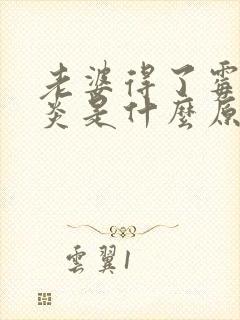 老婆得了霉
炎是什麼原
雲翼1